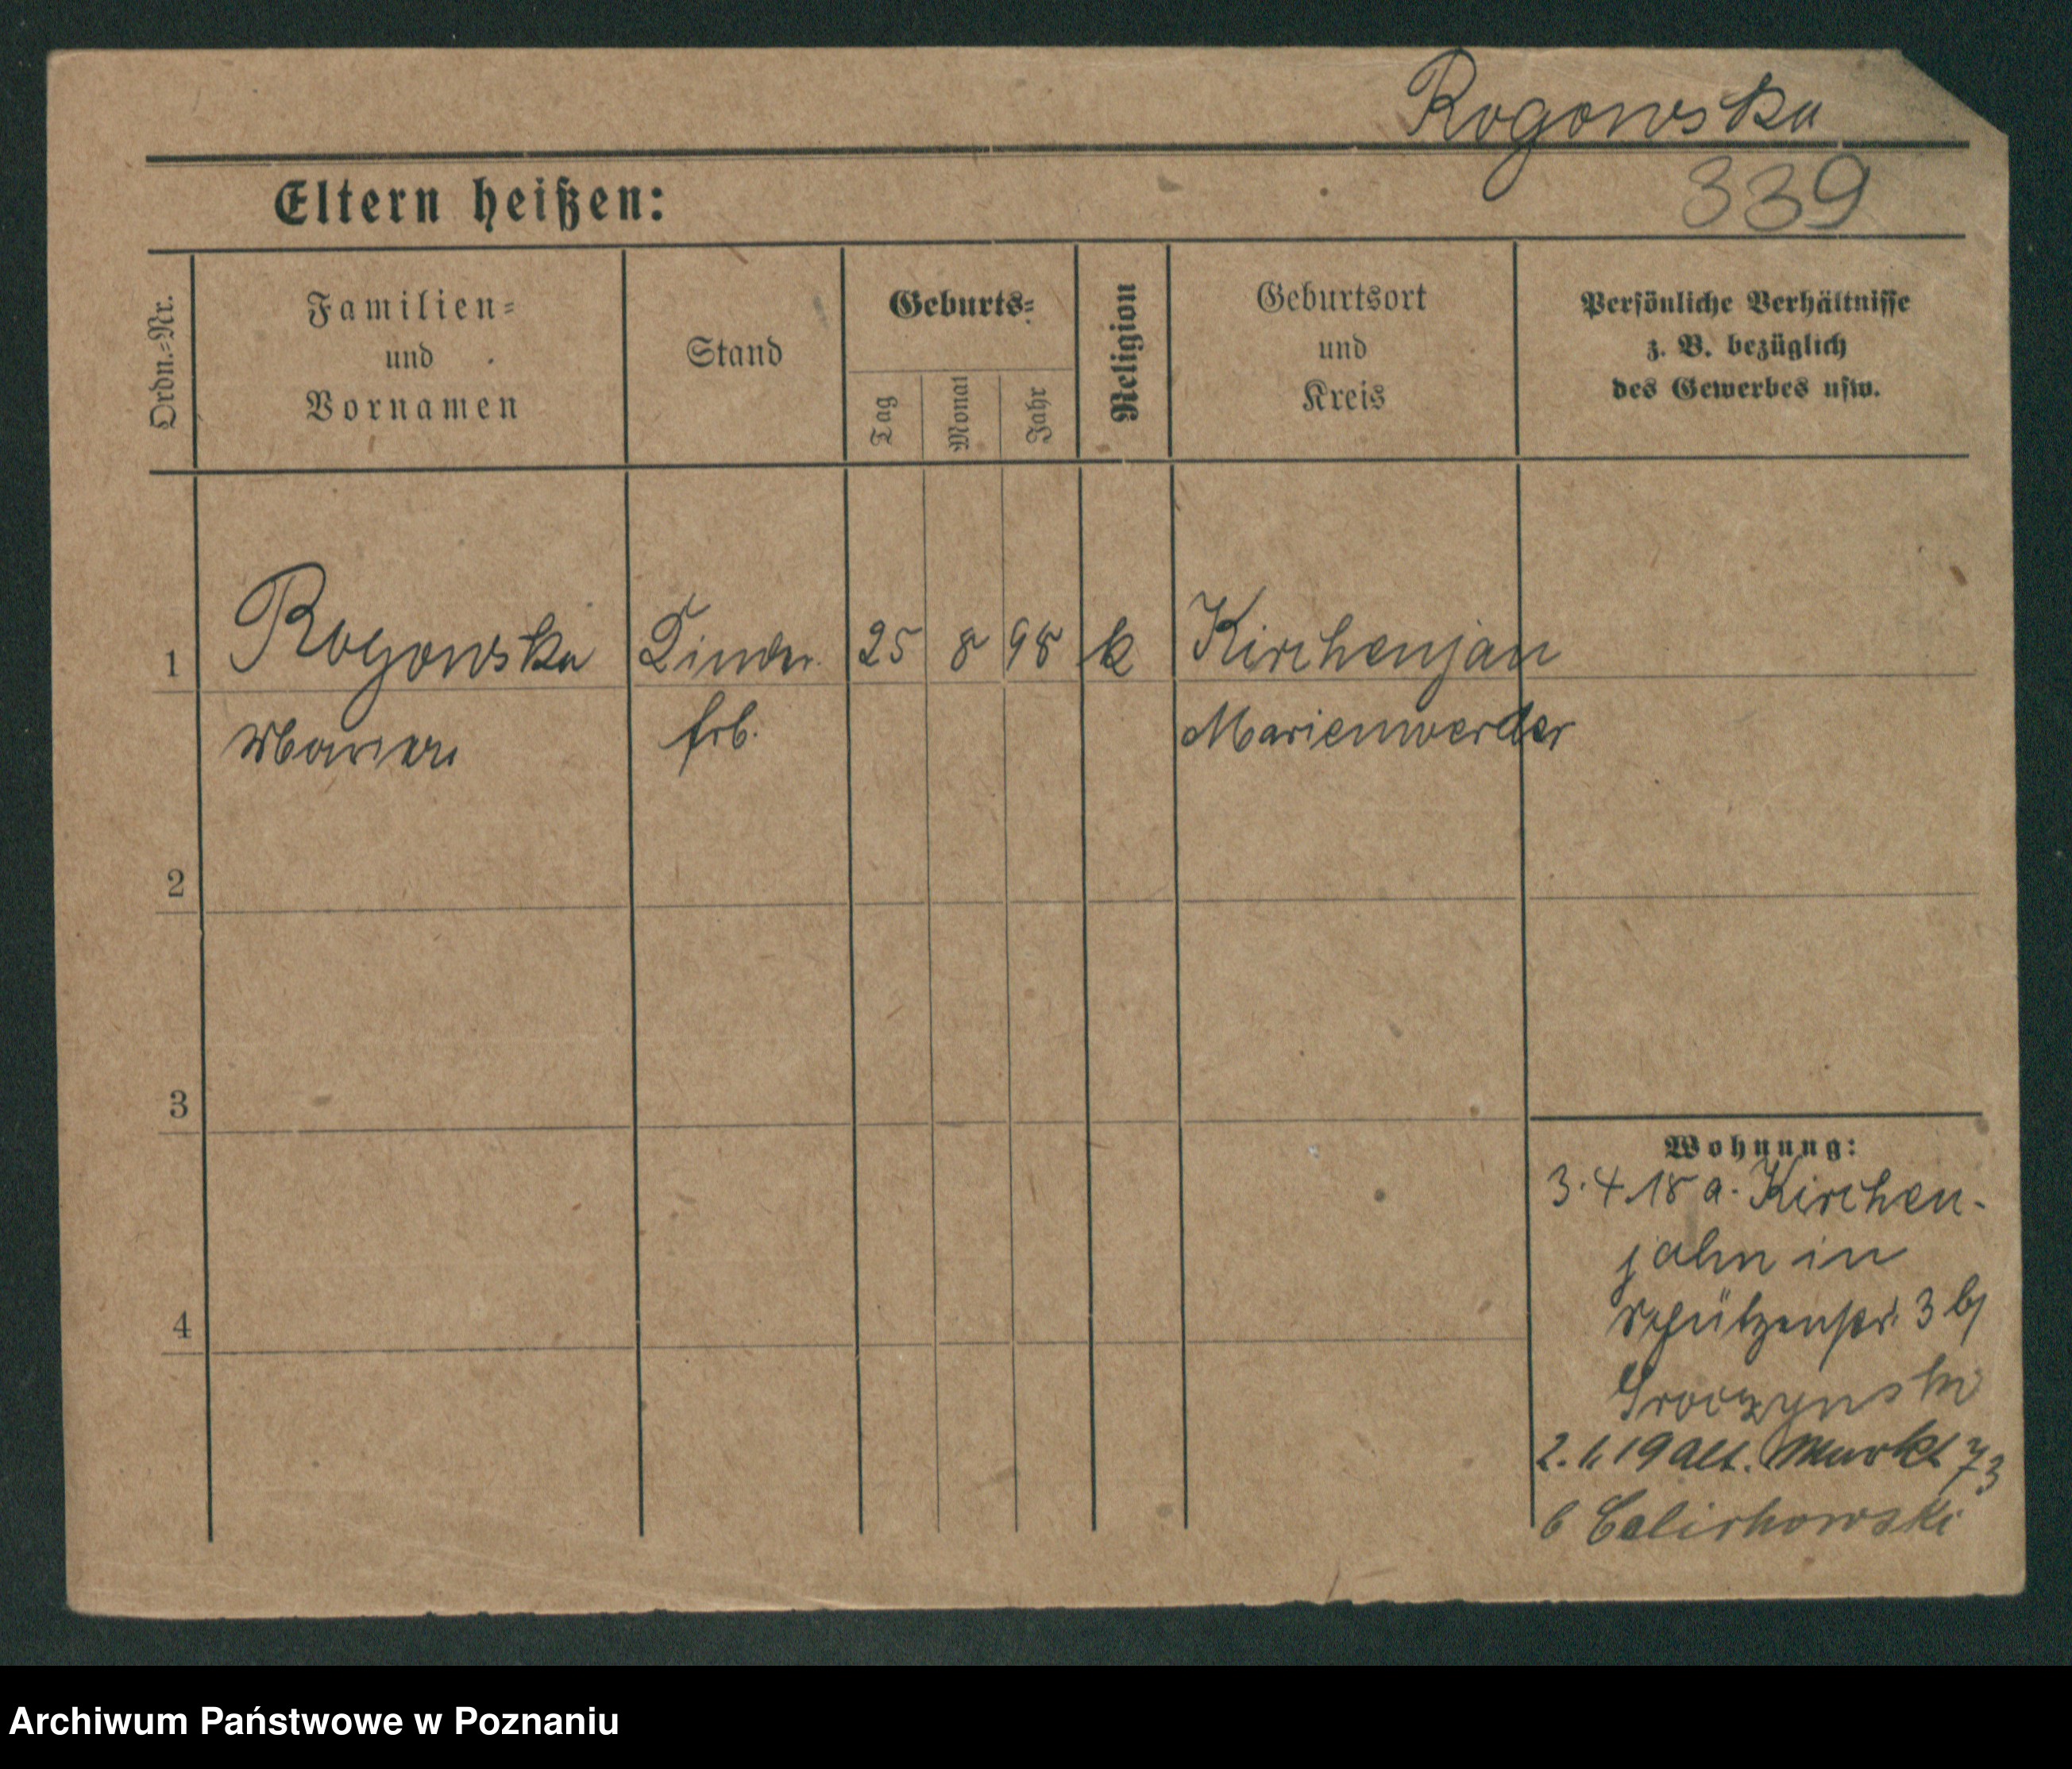 Rogowska
339
Eltern heißen:
Ordn.=Nr.
Familien=
und
Vornamen
Stand
Geburts=
Tag
Monat
Jahr
Religion
Geburtsort
und
Kreis
Persönliche Verhältnisse
z. B. bezüglich
des Gewerbes usw.
1
Rogowska
25
8
98
k
Kirchenjan
Marienwerder
2
3
4
Wohnung:
3.4.18 a. Kirchen-
jahn in
Schützenstr. 3 b/
2.1.19 Alt. Markt 73
b
Archiwum Państwowe w Poznaniu